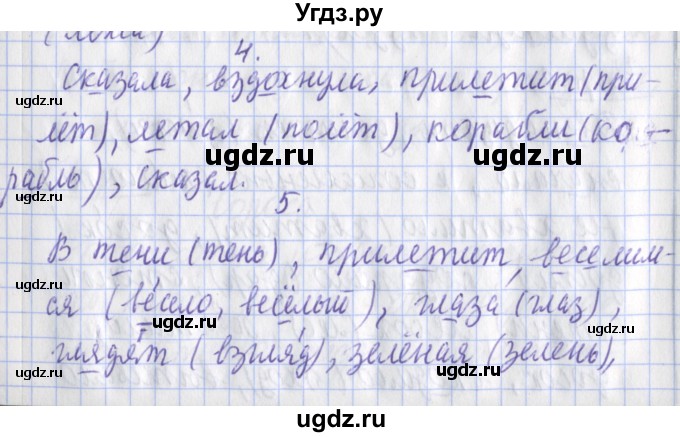 Угдз.ру
(лежа)
4.
Сказала, вздохнула, прилетит (при-
лёт), летал (полёт), корабли (ко-
рабль), сказал.
5.
В тени (тень), прилетит, веселим-
ся (весело, весёлый), глаза (глаз),
глядят (взгляд), зелёная (зелень),
ugdz.ru
ugdz.ru
ugdz.ru
ugdz.ru
ugdz.ru
ugdz.ru
ugdz.ru
ugdz.ru
ugdz.ru
ugdz.ru
ugdz.ru
ugdz.ru
ugdz.ru